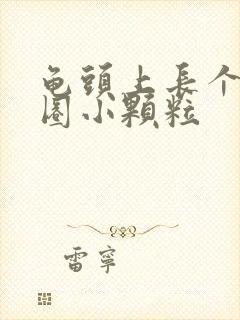 龟頭上長个
圈小顆粒
雷寧